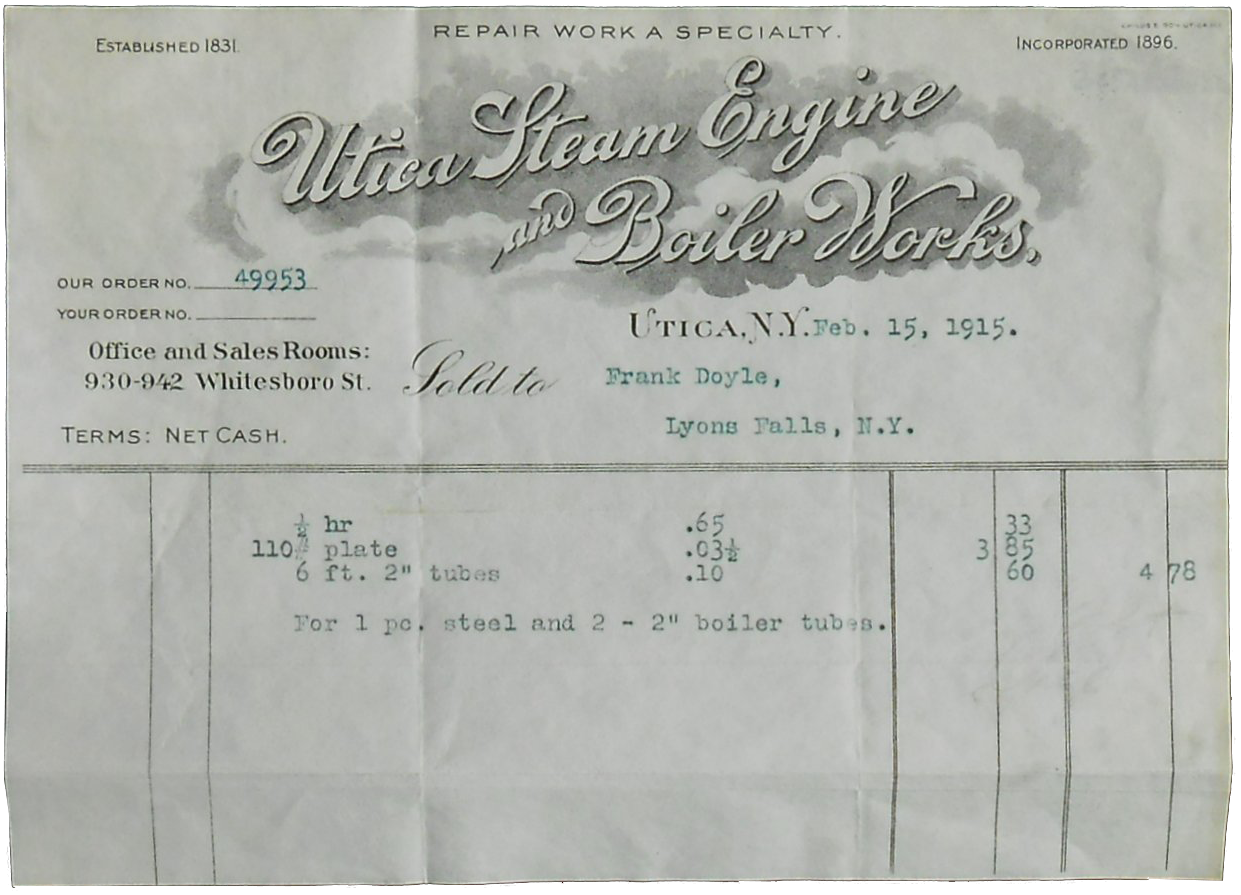 REPAIR WORK A SPECIALTY.
ESTABLISHED 1831.
INCORPORATED 1896.
Utica Steam Engine
and Boiler Works.
OUR ORDER NO. 49953
YOUR ORDER NO.
UTICA, N.Y. Feb. 15, 1915.
Office and Sales Rooms:
930-942 Whitesboro St.
Sold to Frank Doyle,
Lyons Falls, N.Y.
TERMS: NET CASH.
½ hr .65 33
110# plate .03½ 3 85
6 ft. 2" tubes .10 60 4 78
For 1 pc. steel and 2 - 2" boiler tubes.